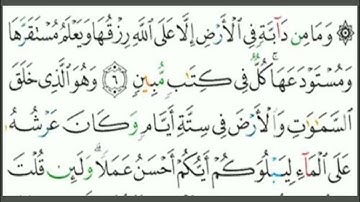 ۞ وَمَا مِن دَآبَّةٍ فِى ٱلْأَرْضِ إِلَّا عَلَى ٱللَّهِ رِزْقُهَا وَيَعْلَمُ مُسْتَقَرَّهَا
وَمُسْتَوْدَعَهَا ۚ كُلٌّ فِى كِتَٰبٍ مُّبِينٍ ٦ وَهُوَ ٱلَّذِى خَلَقَ
ٱلسَّمَٰوَٰتِ وَٱلْأَرْضَ فِى سِتَّةِ أَيَّامٍ وَكَانَ عَرْشُهُۥ
عَلَى ٱلْمَآءِ لِيَبْلُوَكُمْ أَيُّكُمْ أَحْسَنُ عَمَلًا ۗ وَلَئِن قُلْتَ